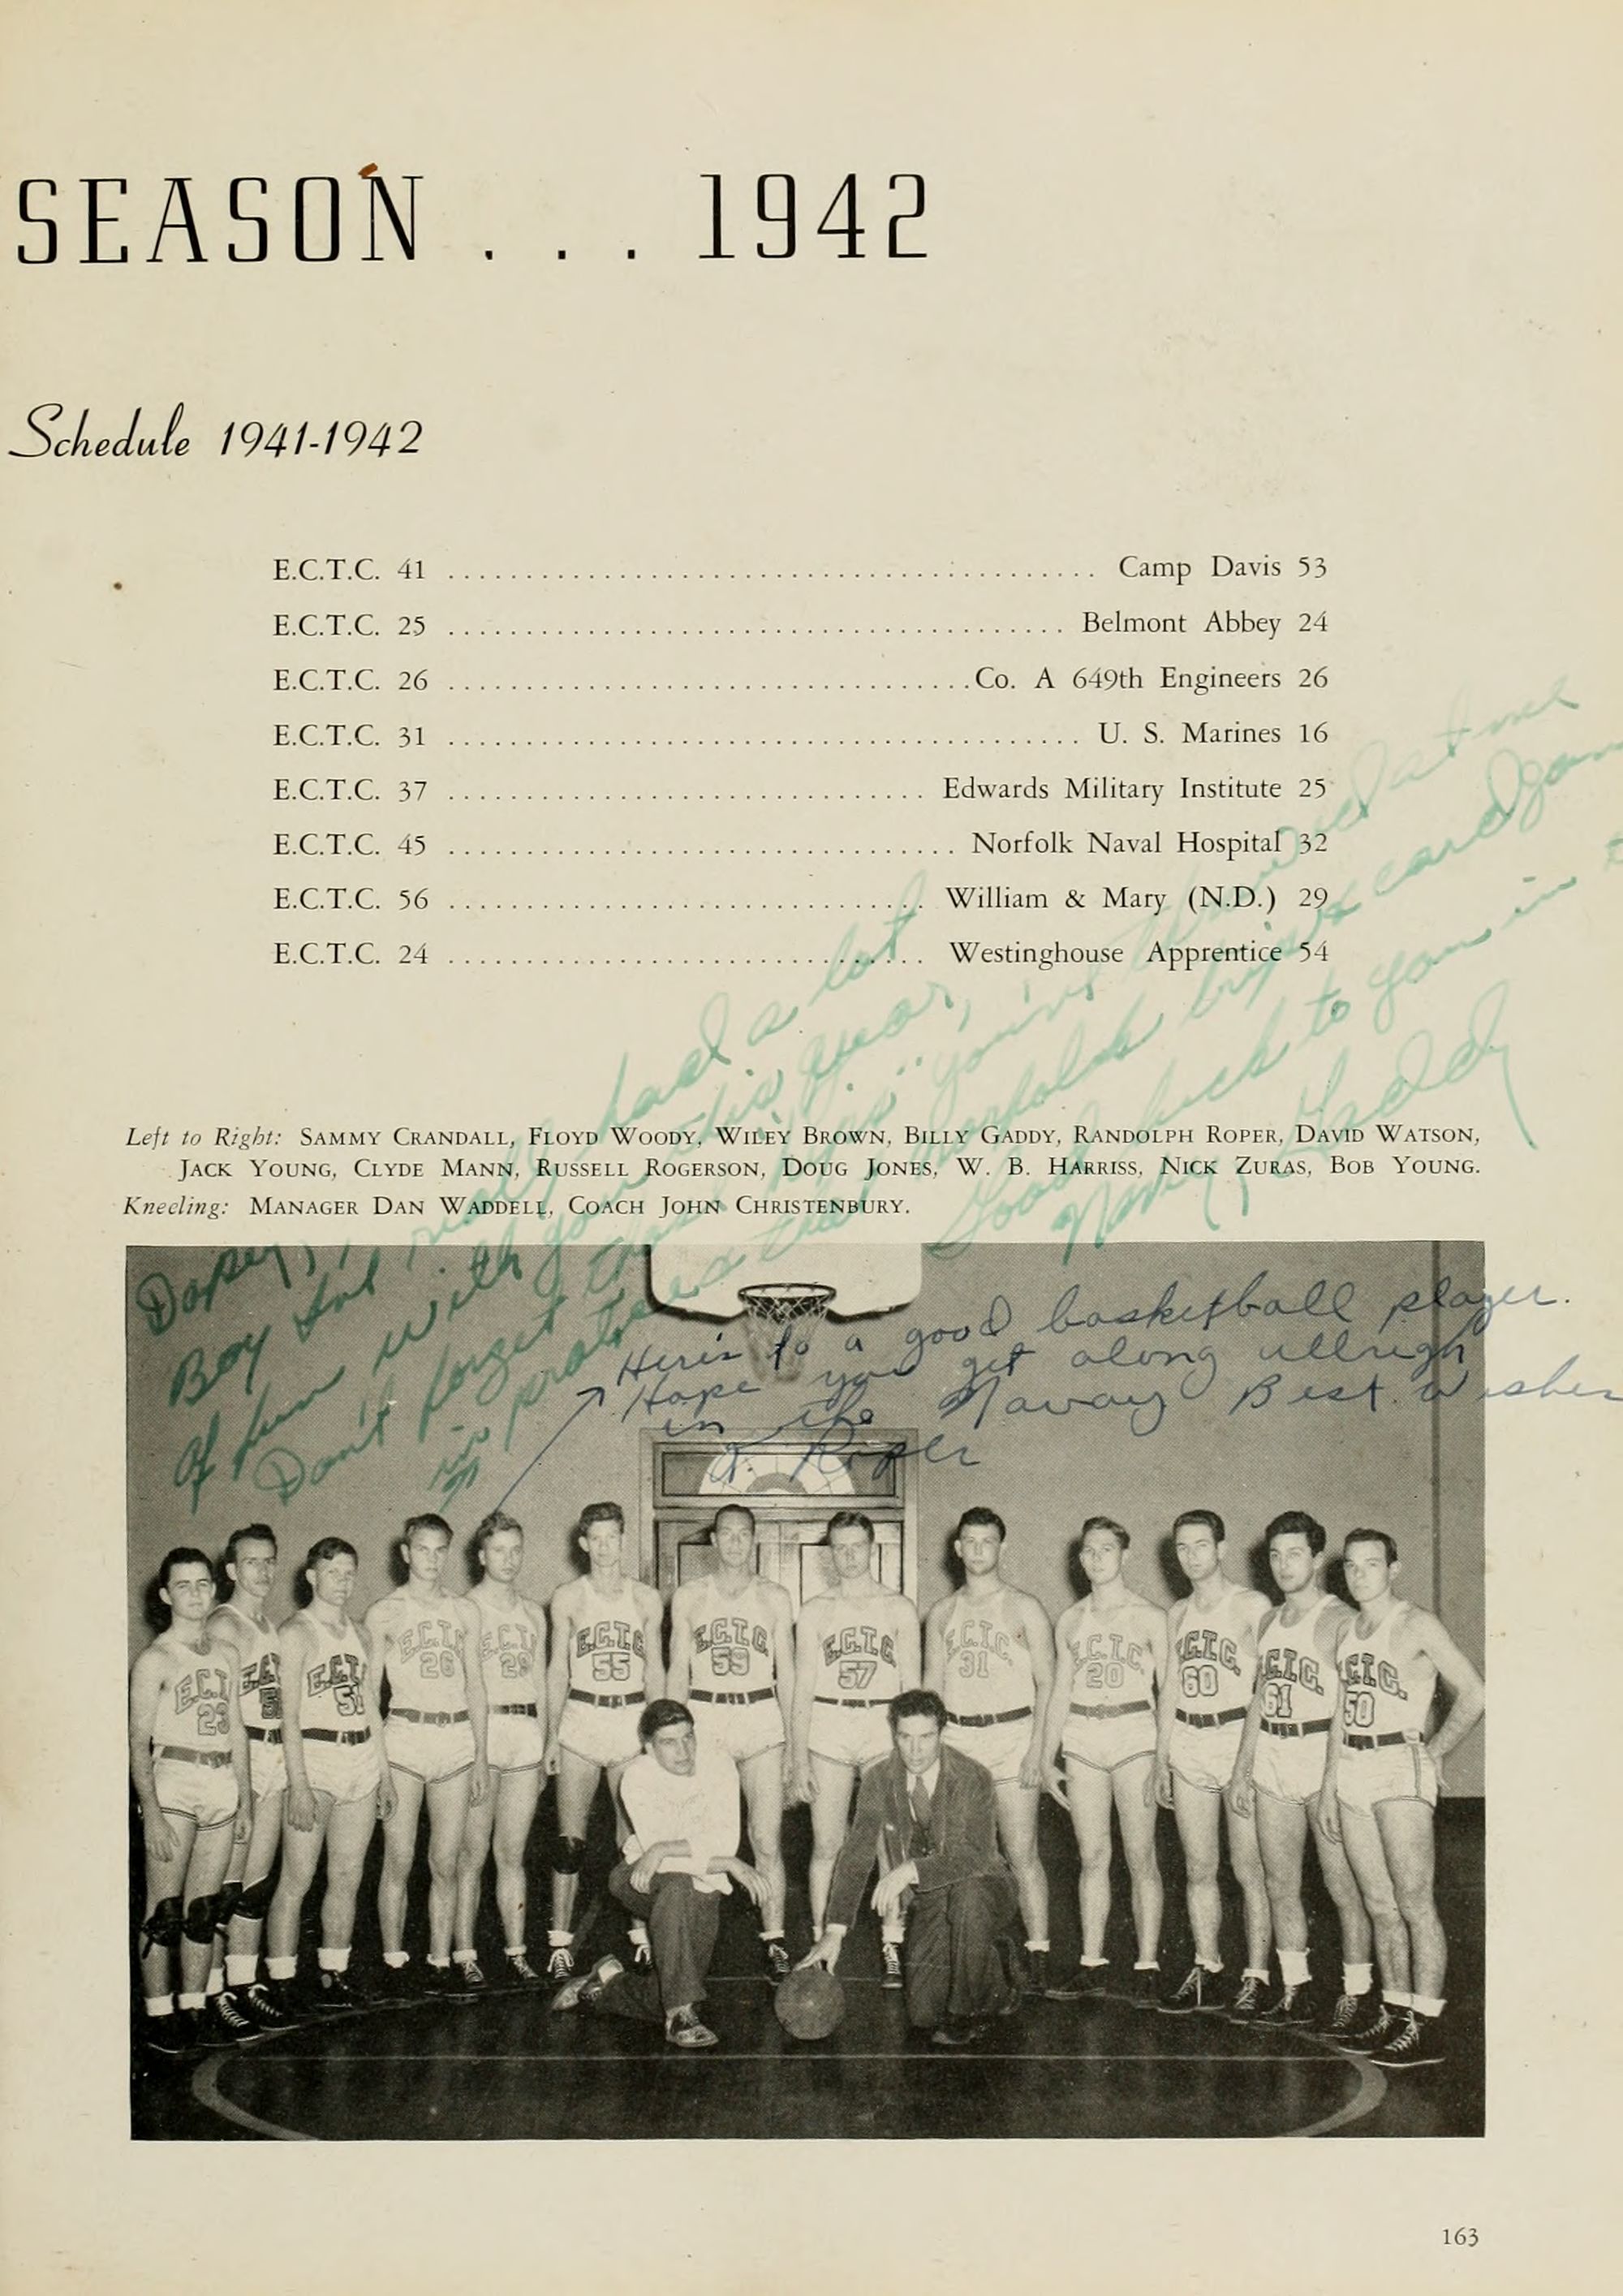 SEASON . . . 1942
Schedule 1941-1942
E.C.T.C. 41 .......................................... Camp Davis 53
E.C.T.C. 25 ........................................ Belmont Abbey 24
E.C.T.C. 26 ..................................Co. A 649th Engineers 26
E.C.T.C. 31 ......................................... U. S. Marines 16
E.C.T.C. 37 ............................... Edwards Military Institute 25
E.C.T.C. 45 ................................. Norfolk Naval Hospital 32
E.C.T.C. 56 ............................... William & Mary (N.D.) 29
E.C.T.C. 24 ............................... Westinghouse Apprentice 54
Left to Right: SAMMY CRANDALL, FLOYD WOODY, WILEY BROWN, BILLY GADDY, RANDOLPH ROPER, DAVID WATSON,
JACK YOUNG, CLYDE MANN, RUSSELL ROGERSON, DOUG JONES, W. B. HARRISS, NICK ZURAS, BOB YOUNG.
Kneeling: MANAGER DAN WADDELL, COACH JOHN CHRISTENBURY.
Dopey,
Boy really had a lot
of fun with you this year,
Don't forget those
Good luck to you in
Gaddy
Here's to a good basketball player.
Hope you get along allrigh
in the Navay Best wishes
R. Roper
E.C.T 23
E.C.T 51
E.C.T.C 26
E.C.T 29
E.C.T.C 55
E.C.T.C. 59
E.C.T.C. 57
E.C.T.C. 31
E.C.T.C. 20
E.C.T.C. 60
C.T.C. 61
C.T.C. 50
163